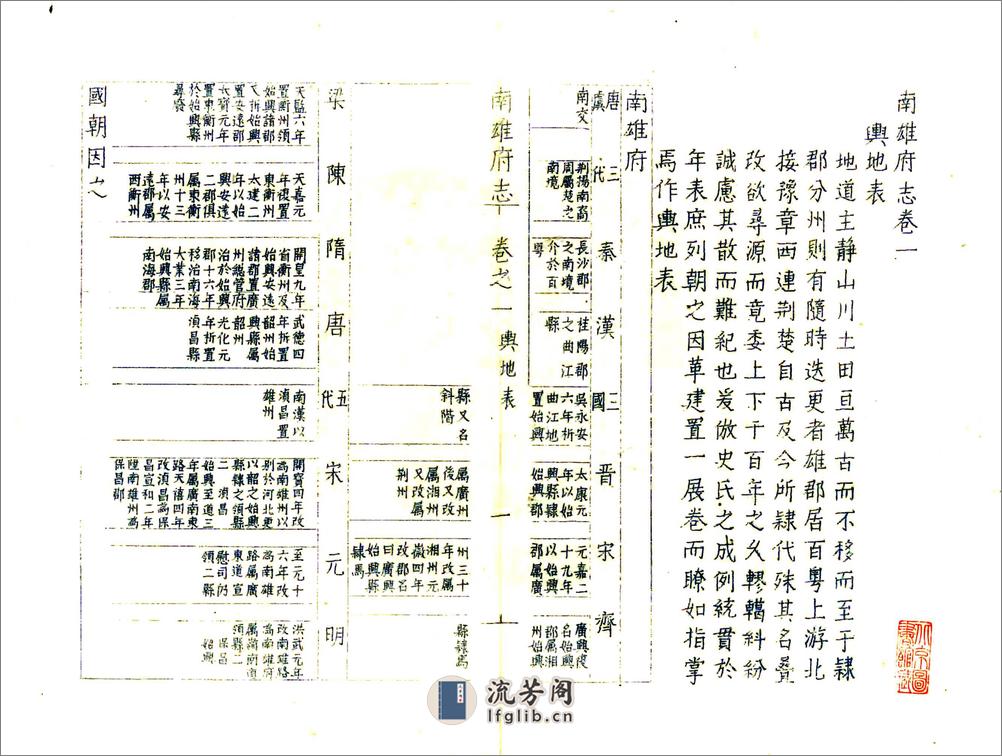 南雄府志卷一
輿地表
地道主静山川土田亘萬古而不移而至于隸
郡分州則有隨時迭更者雄郡居百粵上游北
接豫章西連荆楚自古及今所隸代殊其名疊
改欲尋源而竟委上下千百年之久轇轕糾紛
誠慮其散而難紀也爰倣史氏之成例統貫於
年表庶列朝之因革建置一展卷而瞭如指掌
焉作輿地表
南雄府
唐虞
南交
三代
荆揚南裔
周屬楚之
南境
秦
長沙郡
之南境
介於百
粵
漢
桂陽郡
之曲江
縣
三國
吳永安
六年析
曲江地
置始興
縣又名
斜階
晋
太康元
年以始
興縣隸
始興郡
屬廣州
後又改
屬湘州
又改屬
荆州
宋
元嘉二
十九年
以始興
郡屬廣
州三十
年改屬
湘州元
徽四年
改郡名
曰廣興
始興縣
隸焉
齊
廣興復
名始興
郡屬湘
州始興
縣隸焉
南雄府志 卷之一 輿地表 一
梁
天監六年
置衡州領
始興諸郡
又析始興
置安遠郡
大寶元年
置東衡州
於始興縣
尋廢
陳
天嘉元
年復置
東衡州
太建二
年以始
興安遠
二郡俱
屬東衡
州十三
年以安
遠郡屬
西衡州
隋
開皇九年
省衡州及
始興安遠
諸郡置廣
州總管府
治於始興
郡十六年
移治南海
大業三年
始興縣屬
南海郡
唐
武德四
年析置
韶州始
興縣屬
韶州
光化元
年析置
湞昌縣
五代
南漢以
湞昌置
雄州
宋
開寶四年改
為南雄州以
別於河北更
以韶之始興
縣隸之領縣
二 湞昌
始興至道三
年屬廣南東
路天禧四年
改湞昌為保
昌宣和二年
陞南雄州為
保昌郡
元
至元十
六年改
為南雄
路屬廣
東道宣
慰司仍
領二縣
明
洪武元年
改南雄路
為南雄府
屬嶺南道
領縣二
保昌
始興
國朝因之
流芳阁
lfglib.cn